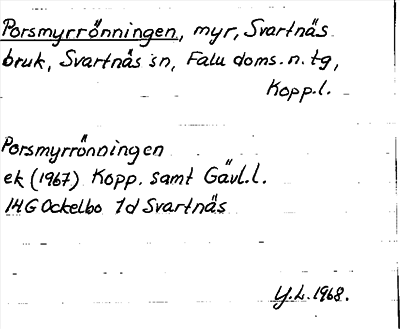 Porsmyrrönningen, myr, Svartnäs
bruk, Svartnäs sn, Falu doms. n. tg,
Kopp. l.
Porsmyrrönningen
ek (1967) Kopp. samt Gävl. l.
14G Ockelbo 1d Svartnäs
Y. L. 1968.